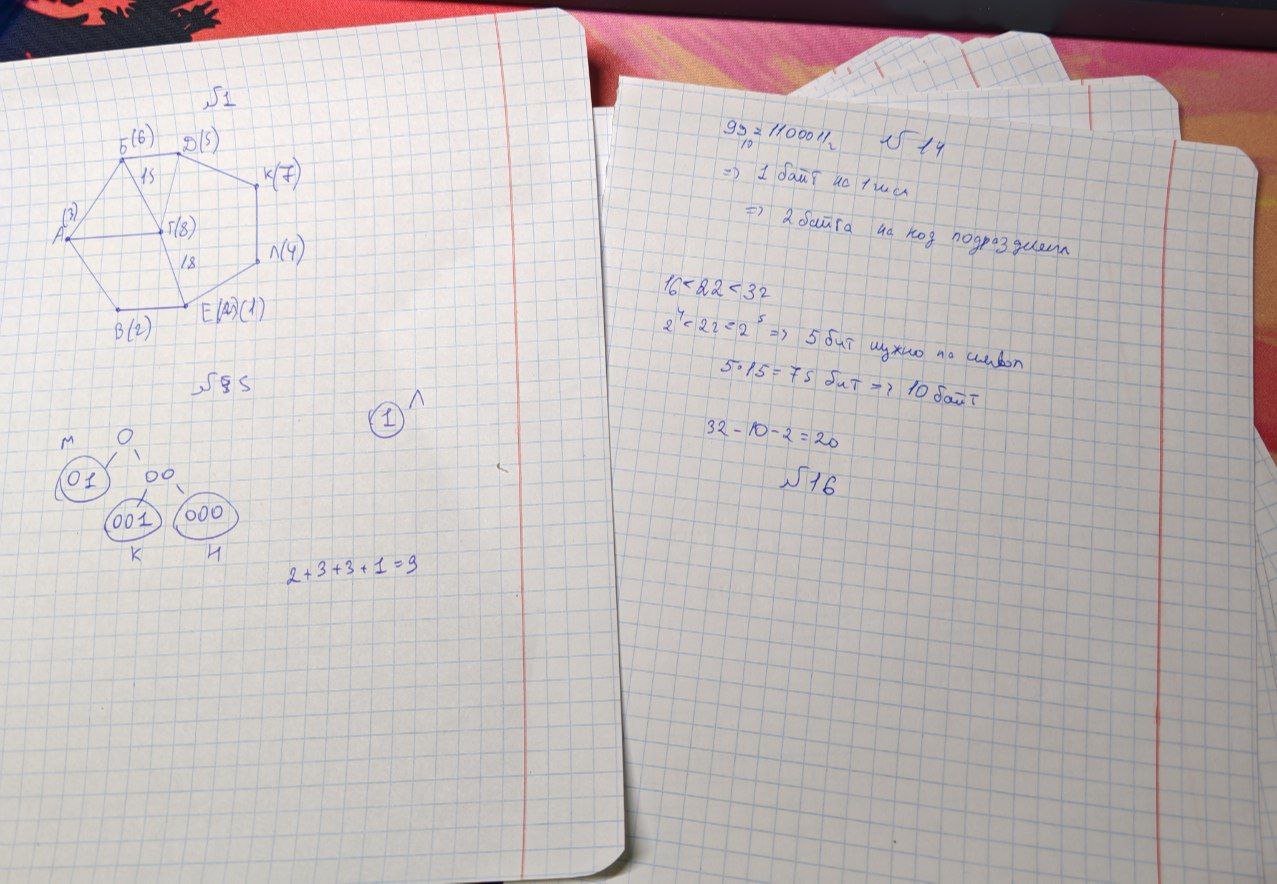 №1
Б(6)
Д(5)
15
К(7)
А(3)
Г(8)
18
Л(4)
В(2)
Е(1)
№5
М
0
1
Л
01
00
001
000
К
Н
2+3+3+1=9
99₁₀=1100011₂ №14
=> 1 байт на 1 числ
=> 2 байта на код подразделен
16<22<32
2⁴<22<2⁵ => 5 бит нужно на символ
5·15=75 бит => 10 байт
32-10-2=20
№16